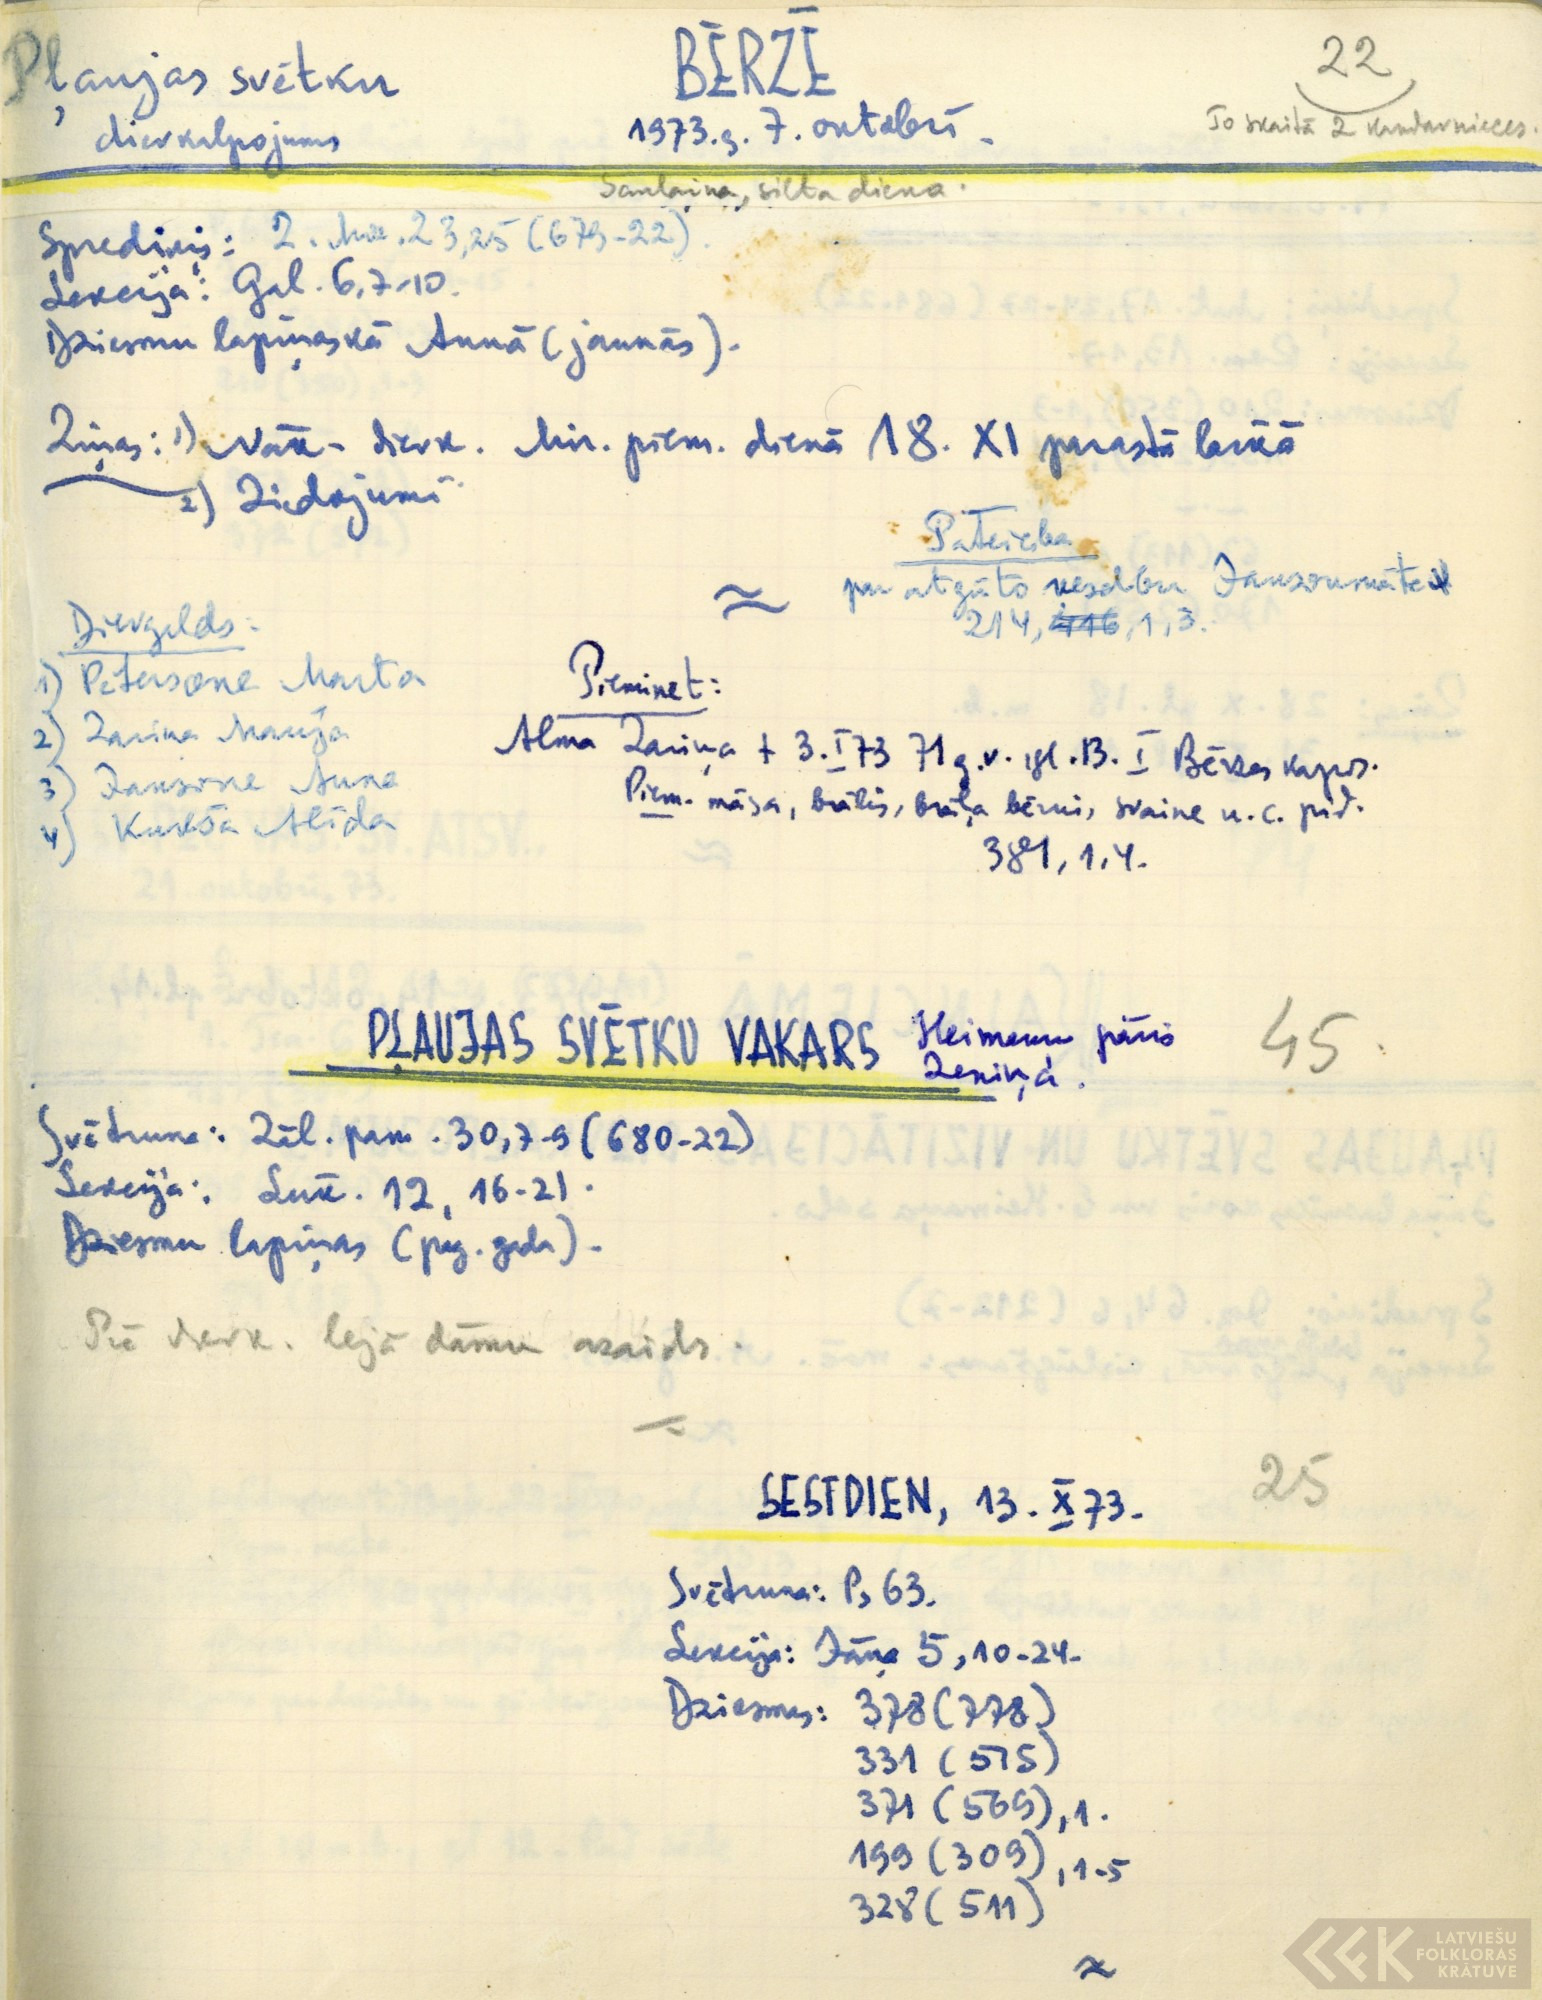 Pļaujas svētku
dievkalpojums
BĒRZĒ
1973.g. 7. oktobrī.
22
To skaitā 2 kandavnieces.
Saulaina, silta diena.
Sprediķis: 2. Moz. 23,25 (679-22).
Lekcija: Gal. 6,7-10.
Dziesmu lapiņas kā Annā (jaunās).
Ziņas: 1) Nāk. dievk. Mir. piem. dienā 18. XI parastā laikā
2) Ziedojumi.
Pateicība
par atgūto veselību Jansonmātei
214, 416, 1, 3.
Dievgalds:
1) Pētersone Marta
2) Zariņa Marija
3) Jansone Anna
4) Alīda
Pieminet:
Alma Zariņa + 3. I 73 71 g.v. igl. B. I Bērzes kapos.
Piem. māsa, brālis, brāļa bērni, svaine u.c. pid.
381, 1, 4.
PĻAUJAS SVĒTKU VAKARS
Heimanu pāris
Zeniņa.
45.
Svētruna: Zāl. pam. 30, 7-9 (680-22)
Lekcija: Luk. 12, 16-21.
Dziesmu lapiņas (pag. gada).
Pēc dievk. lejā dāmu azaids.
SESTDIEN, 13. X 73.
25
Svētruna: Ps 63.
Lekcija: Jāņa 5, 10-24.
Dziesmas: 378 (778)
331 (575)
371 (569), 1.
199 (309), 1-5
328 (511)
LATVIEŠU
FOLKLORAS
KRĀTUVE